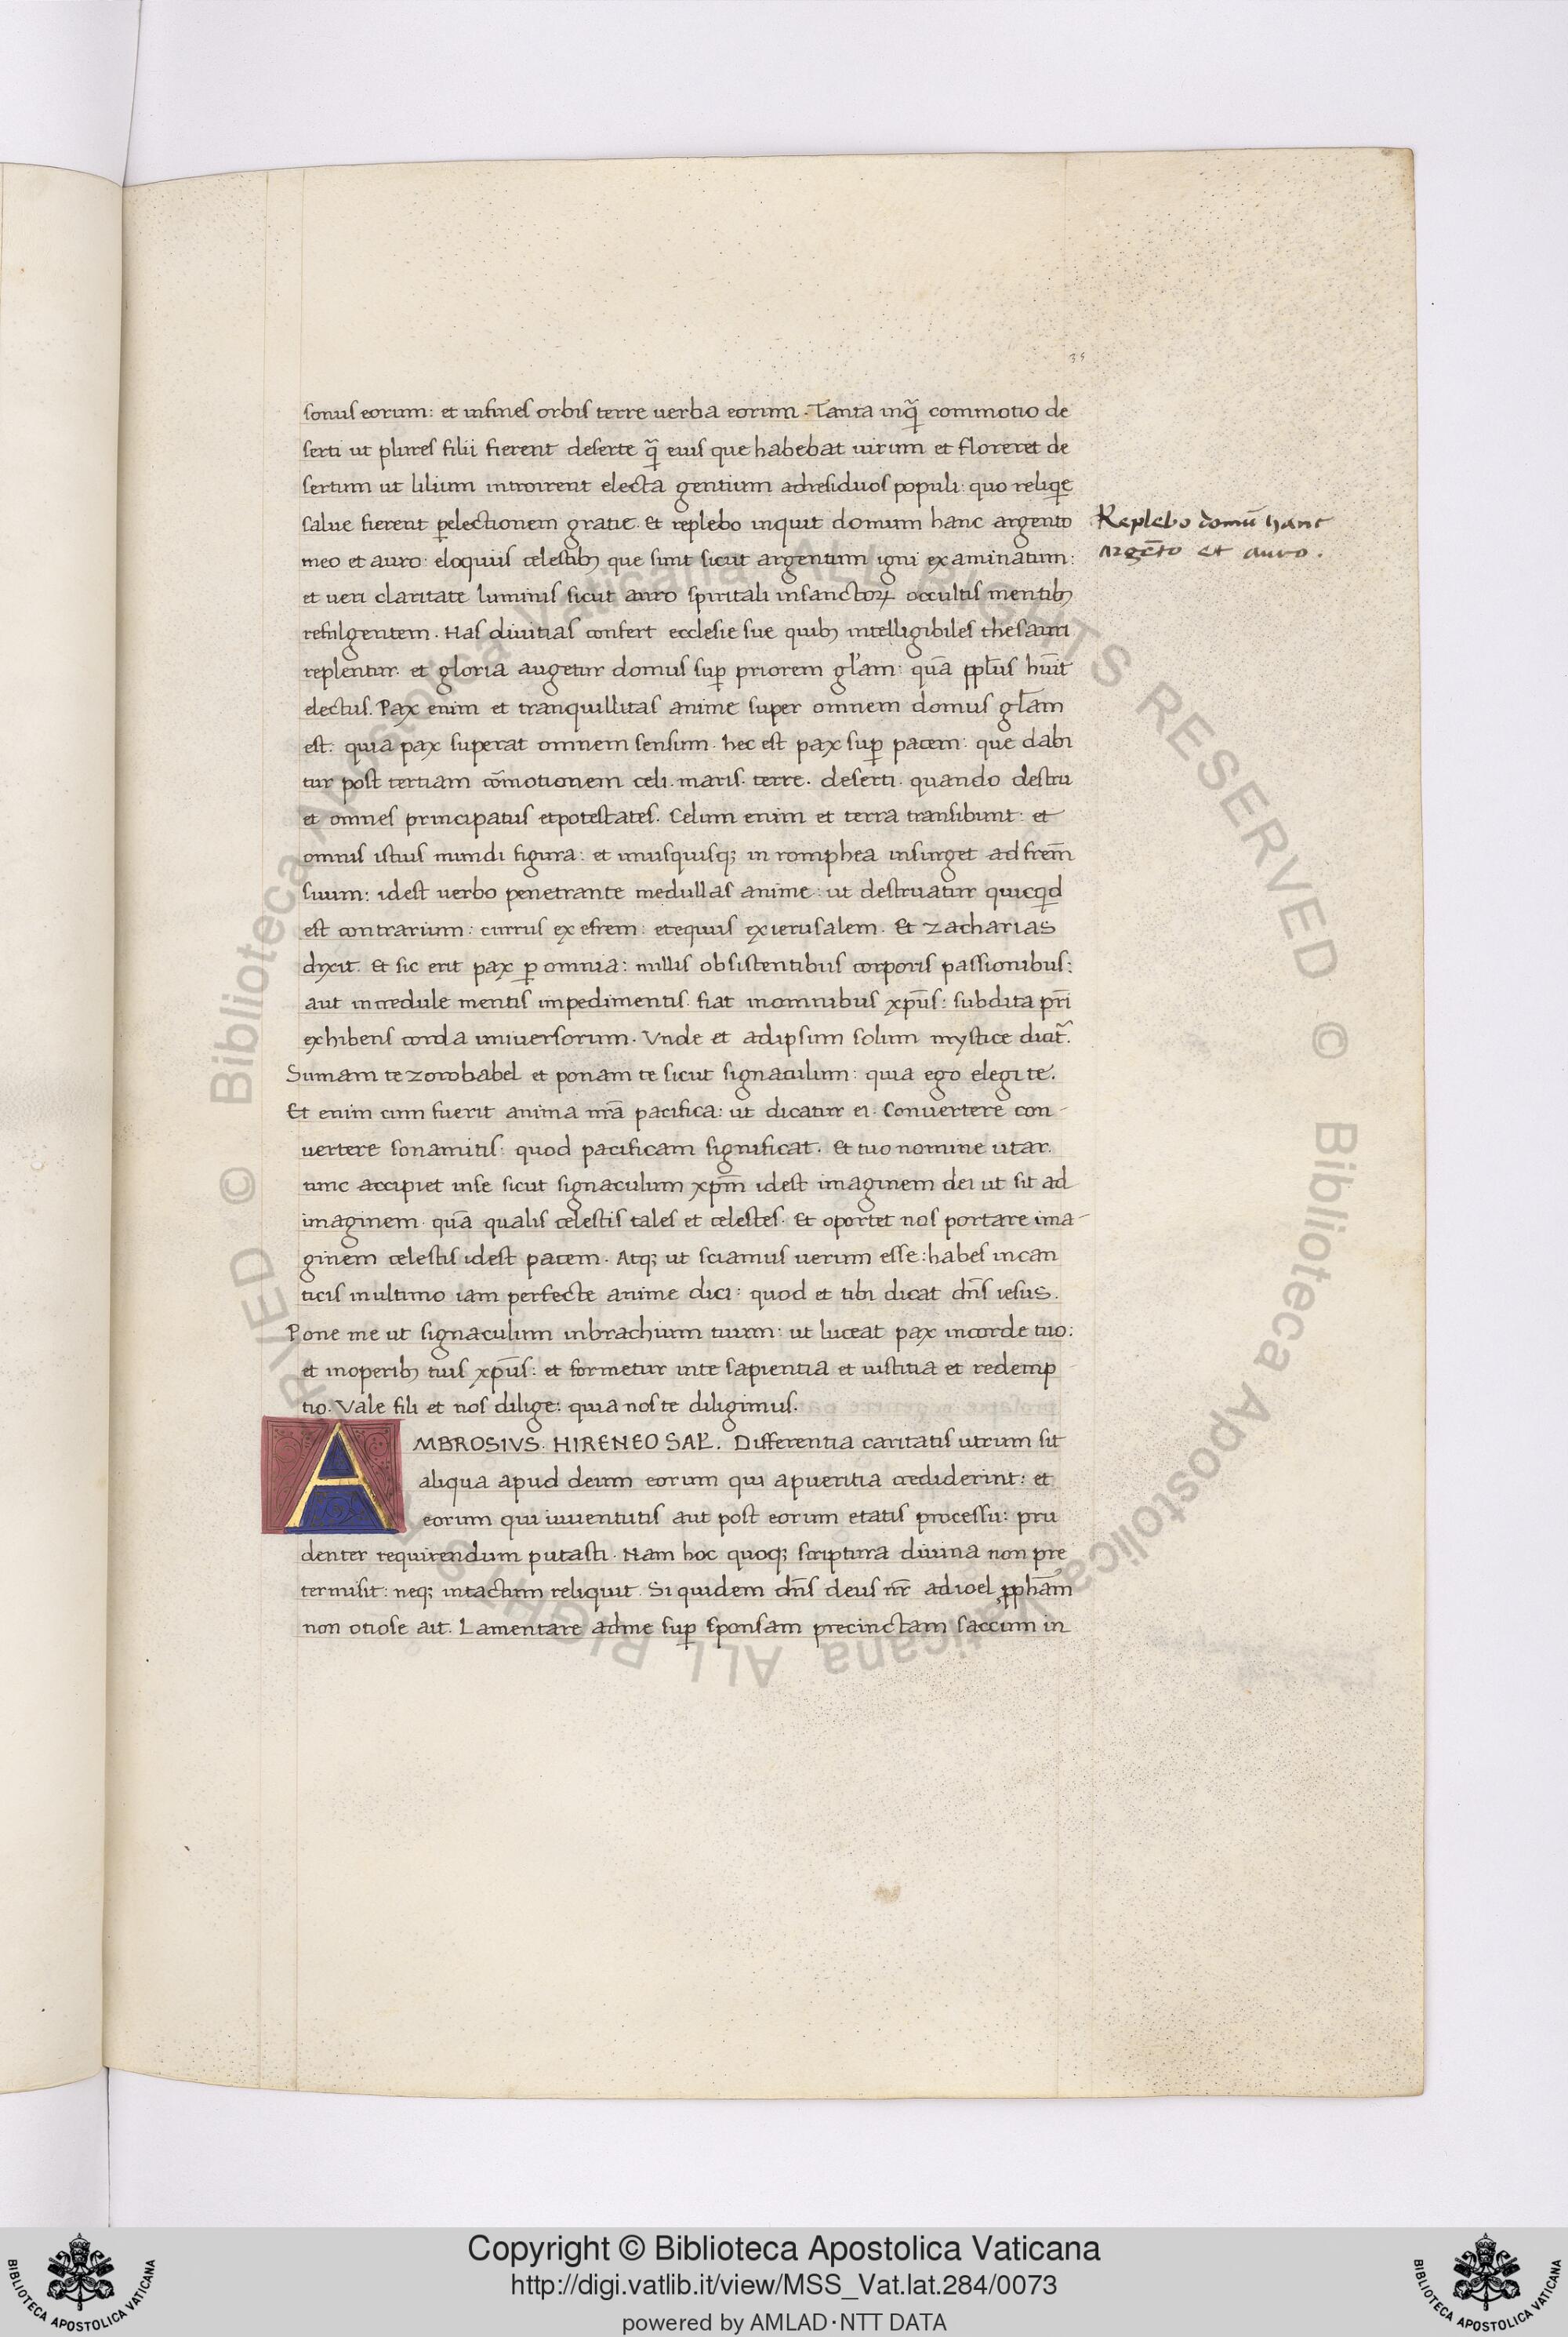 35
sonus eorum: et infines orbis terre uerba eorum. Tanta inq̃ commotio de
serti ut plures filii fierent deserte q̃ eius que habebat uirum et floreret de
sertum ut lilium introirent electa gentium adresiduos populi: quo reliqe
salue fierent ꝑelectionem gratie. Et replebo inquit domum hanc argento
Replebo domū hanc
argēto et auro.
meo et auro: eloquiis celestibꝫ que sunt sicut argentum igni examinatum:
et ueri claritate luminis sicut auro spiritali insanctoꝝ occultis mentibꝫ
refulgentem. Has diuitias confert ecclesie sue quibꝫ intelligibiles thesauri
replentur. et gloria augetur domus suꝑ priorem gl̃am: quā ppl̃us hũit
electus. Pax enim et tranquillitas anime super omnem domus gl̃am
est: quia pax superat omnem sensum. hec est pax suꝑ pacem: que dabi
tur post tertiam cōmotionem celi. maris. terre. deserti. quando destru
et omnes principatus etpotestates. Celum enim et terra transibunt: et
omnis istius mundi figura: et unusquisqꝫ in romphea insurget ad frēm
suum: idest uerbo penetrante medullas anime: ut destruatur quicqd
est contrarium: currus ex efrem: etequus exierusalem. Et zacharias
dixit. Et sic erit pax ꝑ omnia: nullis obsistentibus corporis passionibus:
aut incredule mentis impedimentis. fiat inomnibus xp̄us: subdita pr̄i
exhibens corda uniuersorum. Vnde et adipsum solum mystice dicit̃.
Sumam te zorobabel et ponam te sicut signaculum: quia ego elegi te.
Et enim cum fuerit anima nr̄a pacifica: ut dicatur ei. Conuertere con-
uertere sonamitis: quod pacificam significat. Et tuo nomine utar.
tunc accipiet inse sicut signaculum xp̄m idest imaginem dei ut sit ad
imaginem. quā qualis celestis tales et celestes. Et oportet nos portare ima-
ginem celestis idest pacem. Atqꝫ ut sciamus uerum esse: habes incan
ticis inultimo iam perfecte anime dici: quod et tibi dicat dn̄s iesus.
Pone me ut signaculum inbrachium tuum: ut luceat pax incorde tuo:
et inoperibꝫ tuis xp̄us: et formetur inte sapientia et iustitia et redemp
tio. Vale fili et nos dilige: quia nos te diligimus.
AMBROSIVS. HIRENEO SAL̃. Differentia caritatis utrum sit
aliqua apud deum eorum qui apueritia crediderint: et
eorum qui iuuentutis aut post eorum etatis processu: pru
denter requirendum putasti. Nam hoc quoqꝫ scriptura diuina non pre
termisit: neqꝫ intactum reliquit. Si quidem dn̄s deus nr̄ adioel ꝓphām
non otiose ait. Lamentare adme suꝑ sponsam precinctam saccum in
© Biblioteca Apostolica Vaticana ALL RIGHTS RESERVED
© Biblioteca Apostolica Vaticana ALL RIGHTS RESERVED
Copyright © Biblioteca Apostolica Vaticana
http://digi.vatlib.it/view/MSS_Vat.lat.284/0073
powered by AMLAD·NTT DATA
BIBLIOTECA APOSTOLICA VATICANA
BIBLIOTECA APOSTOLICA VATICANA